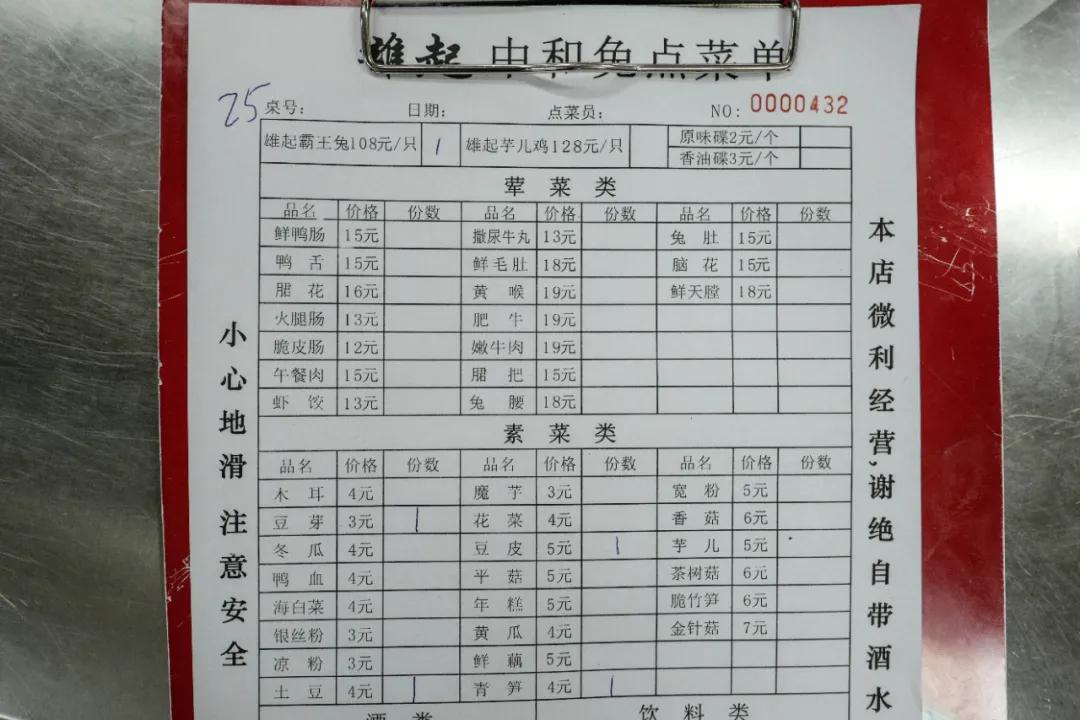 雄起 中和兔点菜单
25 桌号: 日期: 点菜员: NO: 0000432
雄起霸王兔108元/只 1 雄起芋儿鸡128元/只 原味碟2元/个
香油碟3元/个
荤菜类
品名 价格 份数 品名 价格 份数 品名 价格 份数
鲜鸭肠 15元 撒尿牛丸 13元 兔肚 15元
鸭舌 15元 鲜毛肚 18元 脑花 15元
腒花 16元 黄喉 19元 鲜天膛 18元
火腿肠 13元 肥牛 19元
脆皮肠 12元 嫩牛肉 19元
午餐肉 15元 腒把 15元
虾饺 13元 兔腰 18元
素菜类
品名 价格 份数 品名 价格 份数 品名 价格 份数
木耳 4元 魔芋 3元 宽粉 5元
豆芽 3元 1 花菜 4元 香菇 6元
冬瓜 4元 豆皮 5元 1 芋儿 5元
鸭血 4元 平菇 5元 茶树菇 6元
海白菜 4元 年糕 5元 脆竹笋 6元
银丝粉 3元 黄瓜 4元 金针菇 7元
凉粉 3元 鲜藕 5元
土豆 4元 1 青笋 4元 1
酒类 饮料类
小心地滑 注意安全
本店微利经营,谢绝自带酒水